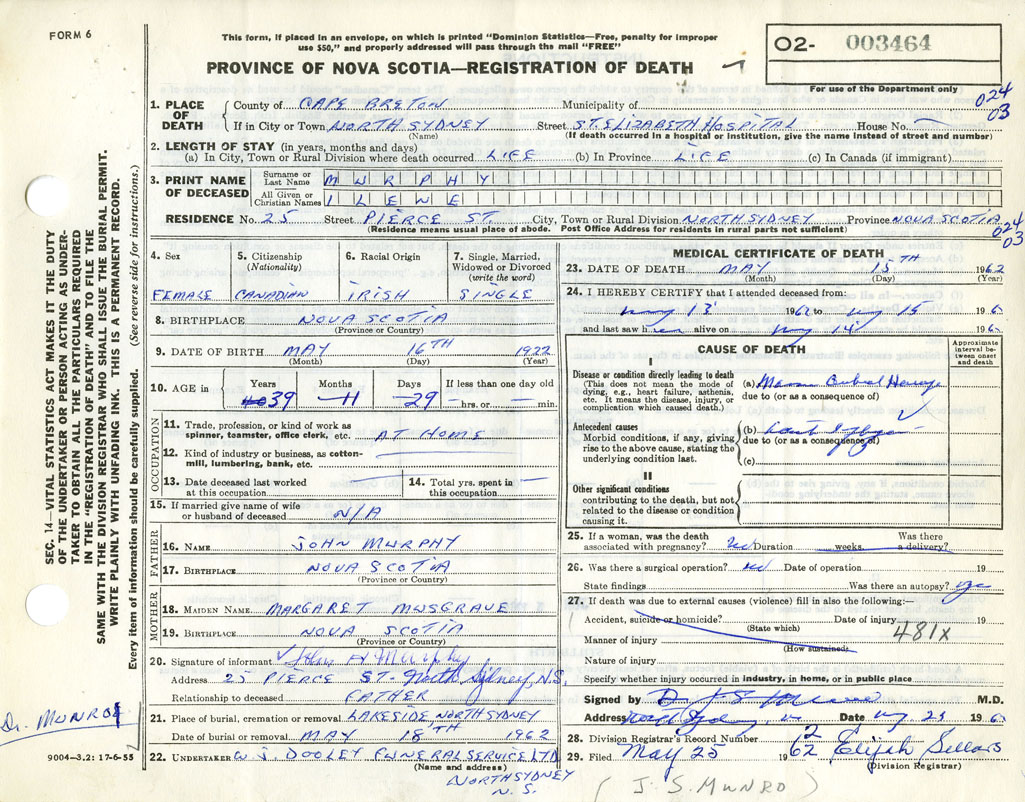 FORM 6
This form, if placed in an envelope, on which is printed "Dominion Statistics—Free, penalty for improper
use $50," and properly addressed will pass through the mail "FREE"
PROVINCE OF NOVA SCOTIA—REGISTRATION OF DEATH
O2- 003464
For use of the Department only
024
03
1. PLACE OF DEATH
County of CAPE BRETON Municipality of
If in City or Town NORTH SYDNEY Street ST. ELIZABETH HOSPITAL House No. —
(Name) (If death occurred in a hospital or institution, give the name instead of street and number)
2. LENGTH OF STAY (in years, months and days)
(a) In City, Town or Rural Division where death occurred LIFE (b) In Province LIFE (c) In Canada (if immigrant)
3. PRINT NAME OF DECEASED
Surname or Last Name MURPHY
All Given or Christian Names ILEWE
RESIDENCE No. 25 Street PIERCE ST City, Town or Rural Division NORTH SYDNEY Province NOVA SCOTIA
(Residence means usual place of abode. Post Office Address for residents in rural parts not sufficient)
024
03
4. Sex
FEMALE
5. Citizenship
(Nationality)
CANADIAN
6. Racial Origin
IRISH
7. Single, Married,
Widowed or Divorced
(write the word)
SINGLE
8. BIRTHPLACE NOVA SCOTIA
(Province or Country)
9. DATE OF BIRTH MAY 16TH 1922
(Month) (Day) (Year)
10. AGE in
Years Months Days If less than one day old
39 11 29 — hrs. or — min.
OCCUPATION
11. Trade, profession, or kind of work as
spinner, teamster, office clerk, etc. AT HOME
12. Kind of industry or business, as cotton-
mill, lumbering, bank, etc.
13. Date deceased last worked
at this occupation —
14. Total yrs. spent in
this occupation —
15. If married give name of wife
or husband of deceased N/A
FATHER
16. NAME JOHN MURPHY
17. BIRTHPLACE NOVA SCOTIA
(Province or Country)
MOTHER
18. MAIDEN NAME MARGARET MUSGRAVE
19. BIRTHPLACE NOVA SCOTIA
(Province or Country)
20. Signature of informant John A Murphy
Address 25 PIERCE ST. North Sydney, N.S.
Relationship to deceased FATHER
21. Place of burial, cremation or removal LAKESIDE NORTH SYDNEY
Date of burial or removal MAY 18TH 1962
22. UNDERTAKER W. J. DOOLEY FUNERAL SERVICE LTD
(Name and address)
NORTH SYDNEY
N. S.
MEDICAL CERTIFICATE OF DEATH
23. DATE OF DEATH MAY 15TH 1962
(Month) (Day) (Year)
24. I HEREBY CERTIFY that I attended deceased from:
May 13 1962 to May 15 196
and last saw her alive on May 14 196
CAUSE OF DEATH
Approximate interval between onset and death
I
Disease or condition directly leading to death
(This does not mean the mode of
dying, e.g., heart failure, asthenia,
etc. It means the disease, injury, or
complication which caused death.)
(a)
due to (or as a consequence of)
Antecedent causes
Morbid conditions, if any, giving
rise to the above, stating the
underlying condition last.
(b)
due to (or as a consequence of)
(c)
II
Other significant conditions
contributing to the death, but not
related to the disease or condition
causing it.
25. If a woman, was the death
associated with pregnancy? No Duration weeks. Was there
a delivery?
26. Was there a surgical operation? No Date of operation 19
State findings Was there an autopsy? yes
27. If death was due to external causes (violence) fill in also the following:—
Accident, suicide or homicide? Date of injury 19
(State which)
481x
Manner of injury
(How sustained)
Nature of injury
Specify whether injury occurred in industry, in home, or in public place
Signed by Dr J S Munro M.D.
Address North Sydney Date May 23 196
28. Division Registrar's Record Number 12
29. Filed May 25 1962 Elijah Sellars
(Division Registrar)
( J. S. MUNRO )
SEC. 14—VITAL STATISTICS ACT MAKES IT THE DUTY
OF THE UNDERTAKER OR PERSON ACTING AS UNDER-
TAKER TO OBTAIN ALL THE PARTICULARS REQUIRED
IN THE "REGISTRATION OF DEATH" AND TO FILE THE
SAME WITH THE DIVISION REGISTRAR WHO SHALL ISSUE THE BURIAL PERMIT.
WRITE PLAINLY WITH UNFADING INK. THIS IS A PERMANENT RECORD.
Every item of information should be carefully supplied. (See reverse side for instructions.)
Dr. MUNROE
9004—3.2: 17-6-55